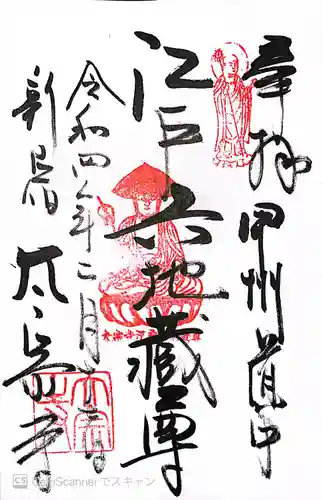 奉拝 甲州道中
江戸六地蔵尊
令和四年二月十一日
新宿 太宗寺
CS CamScannerでスキャン